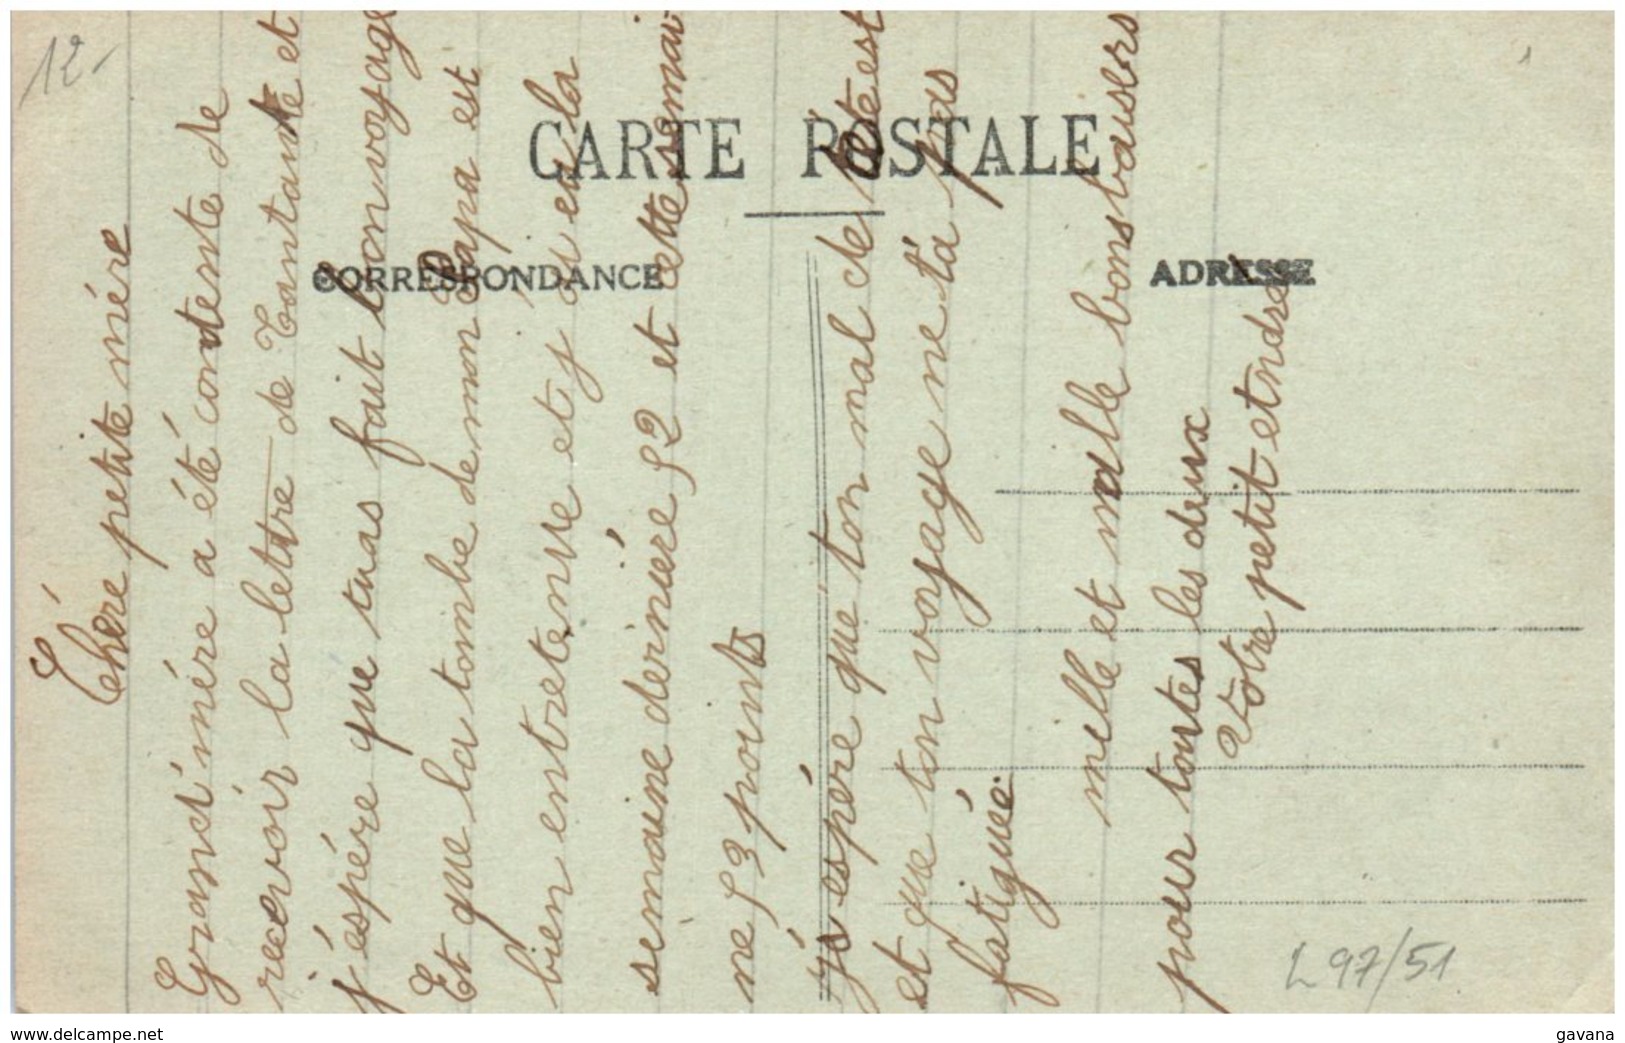 12-
CARTE POSTALE
CORRESPONDANCE
ADRESSE
Chére petite mére
Grand'mére a été contente de
recevoir la lettre de Tantante et
j'éspére que tu as fait bon voyage
Et que la tombe de mon Papa est
bien entretenue et j'ai eu la
semaine derniére 52 et cette semai
ne 53 points
j'éspére que ton mal de tête est
et que ton voyage ne t'a pas
fatiguée.
mille et mille bons baisers
pour toutes les deux
Votre petit etndre
L97/51
www.delcampe.net
gavana